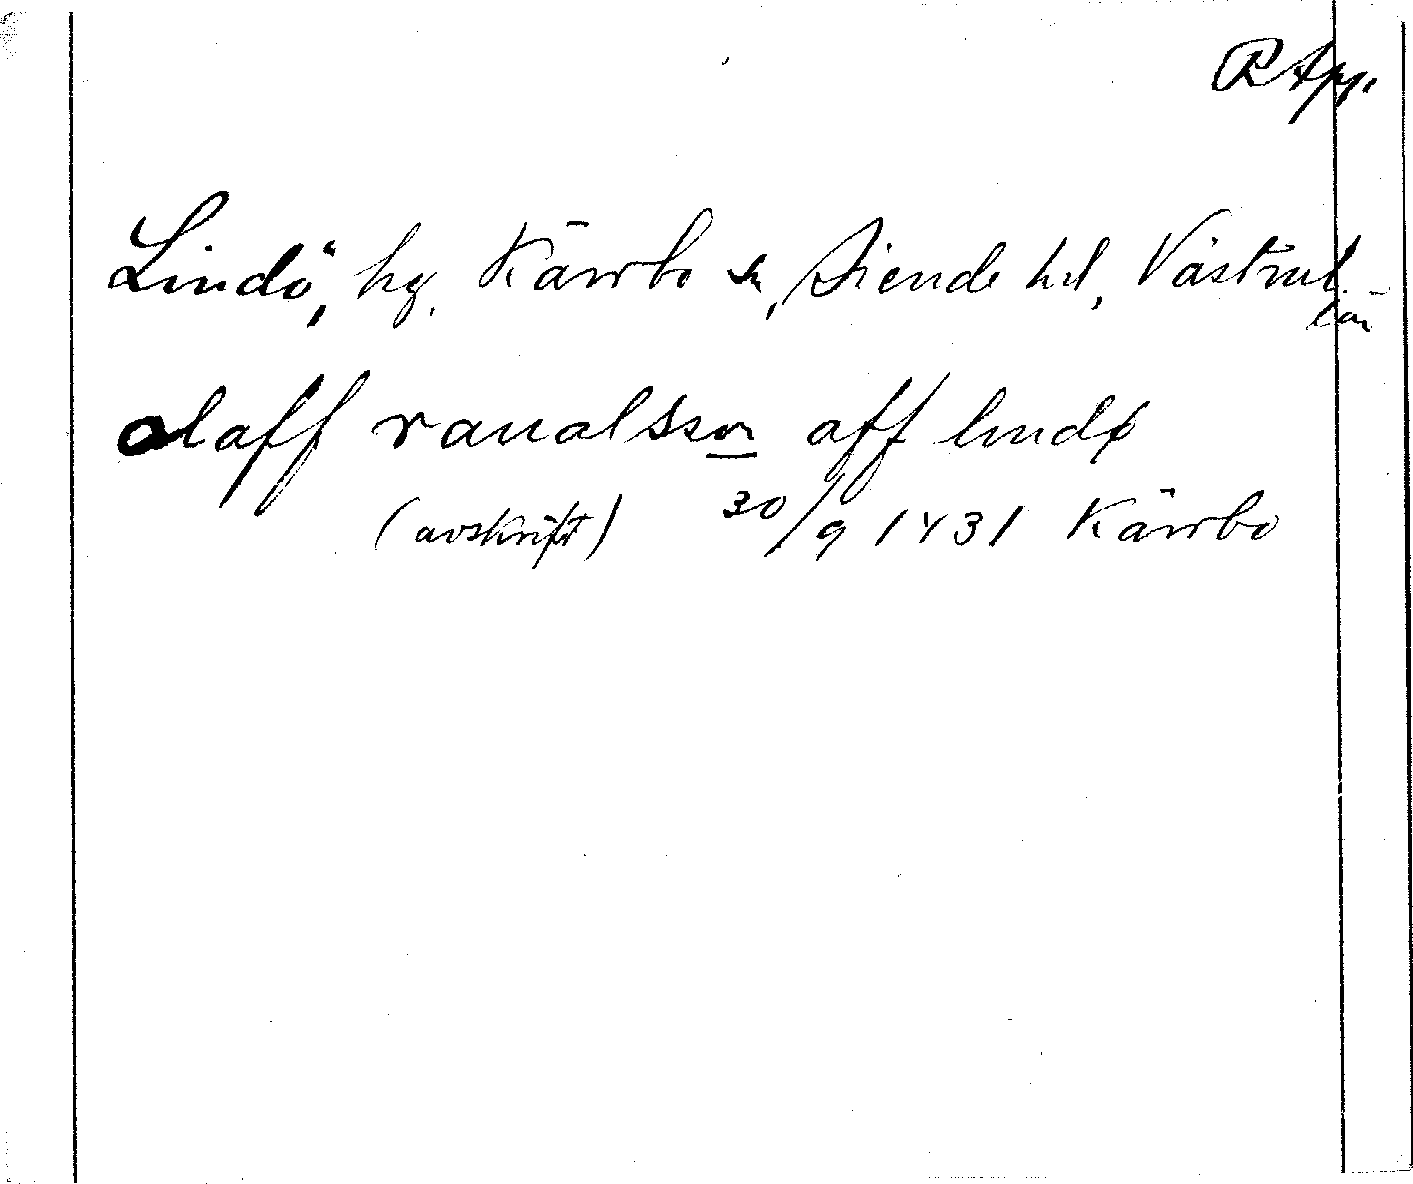 R App.
Lindö, hg, Kärrbo sn, Siende hd, Västml.
län
olaff raualsson aff lindø
(avskrift) 30/9 1431 Kärrbo